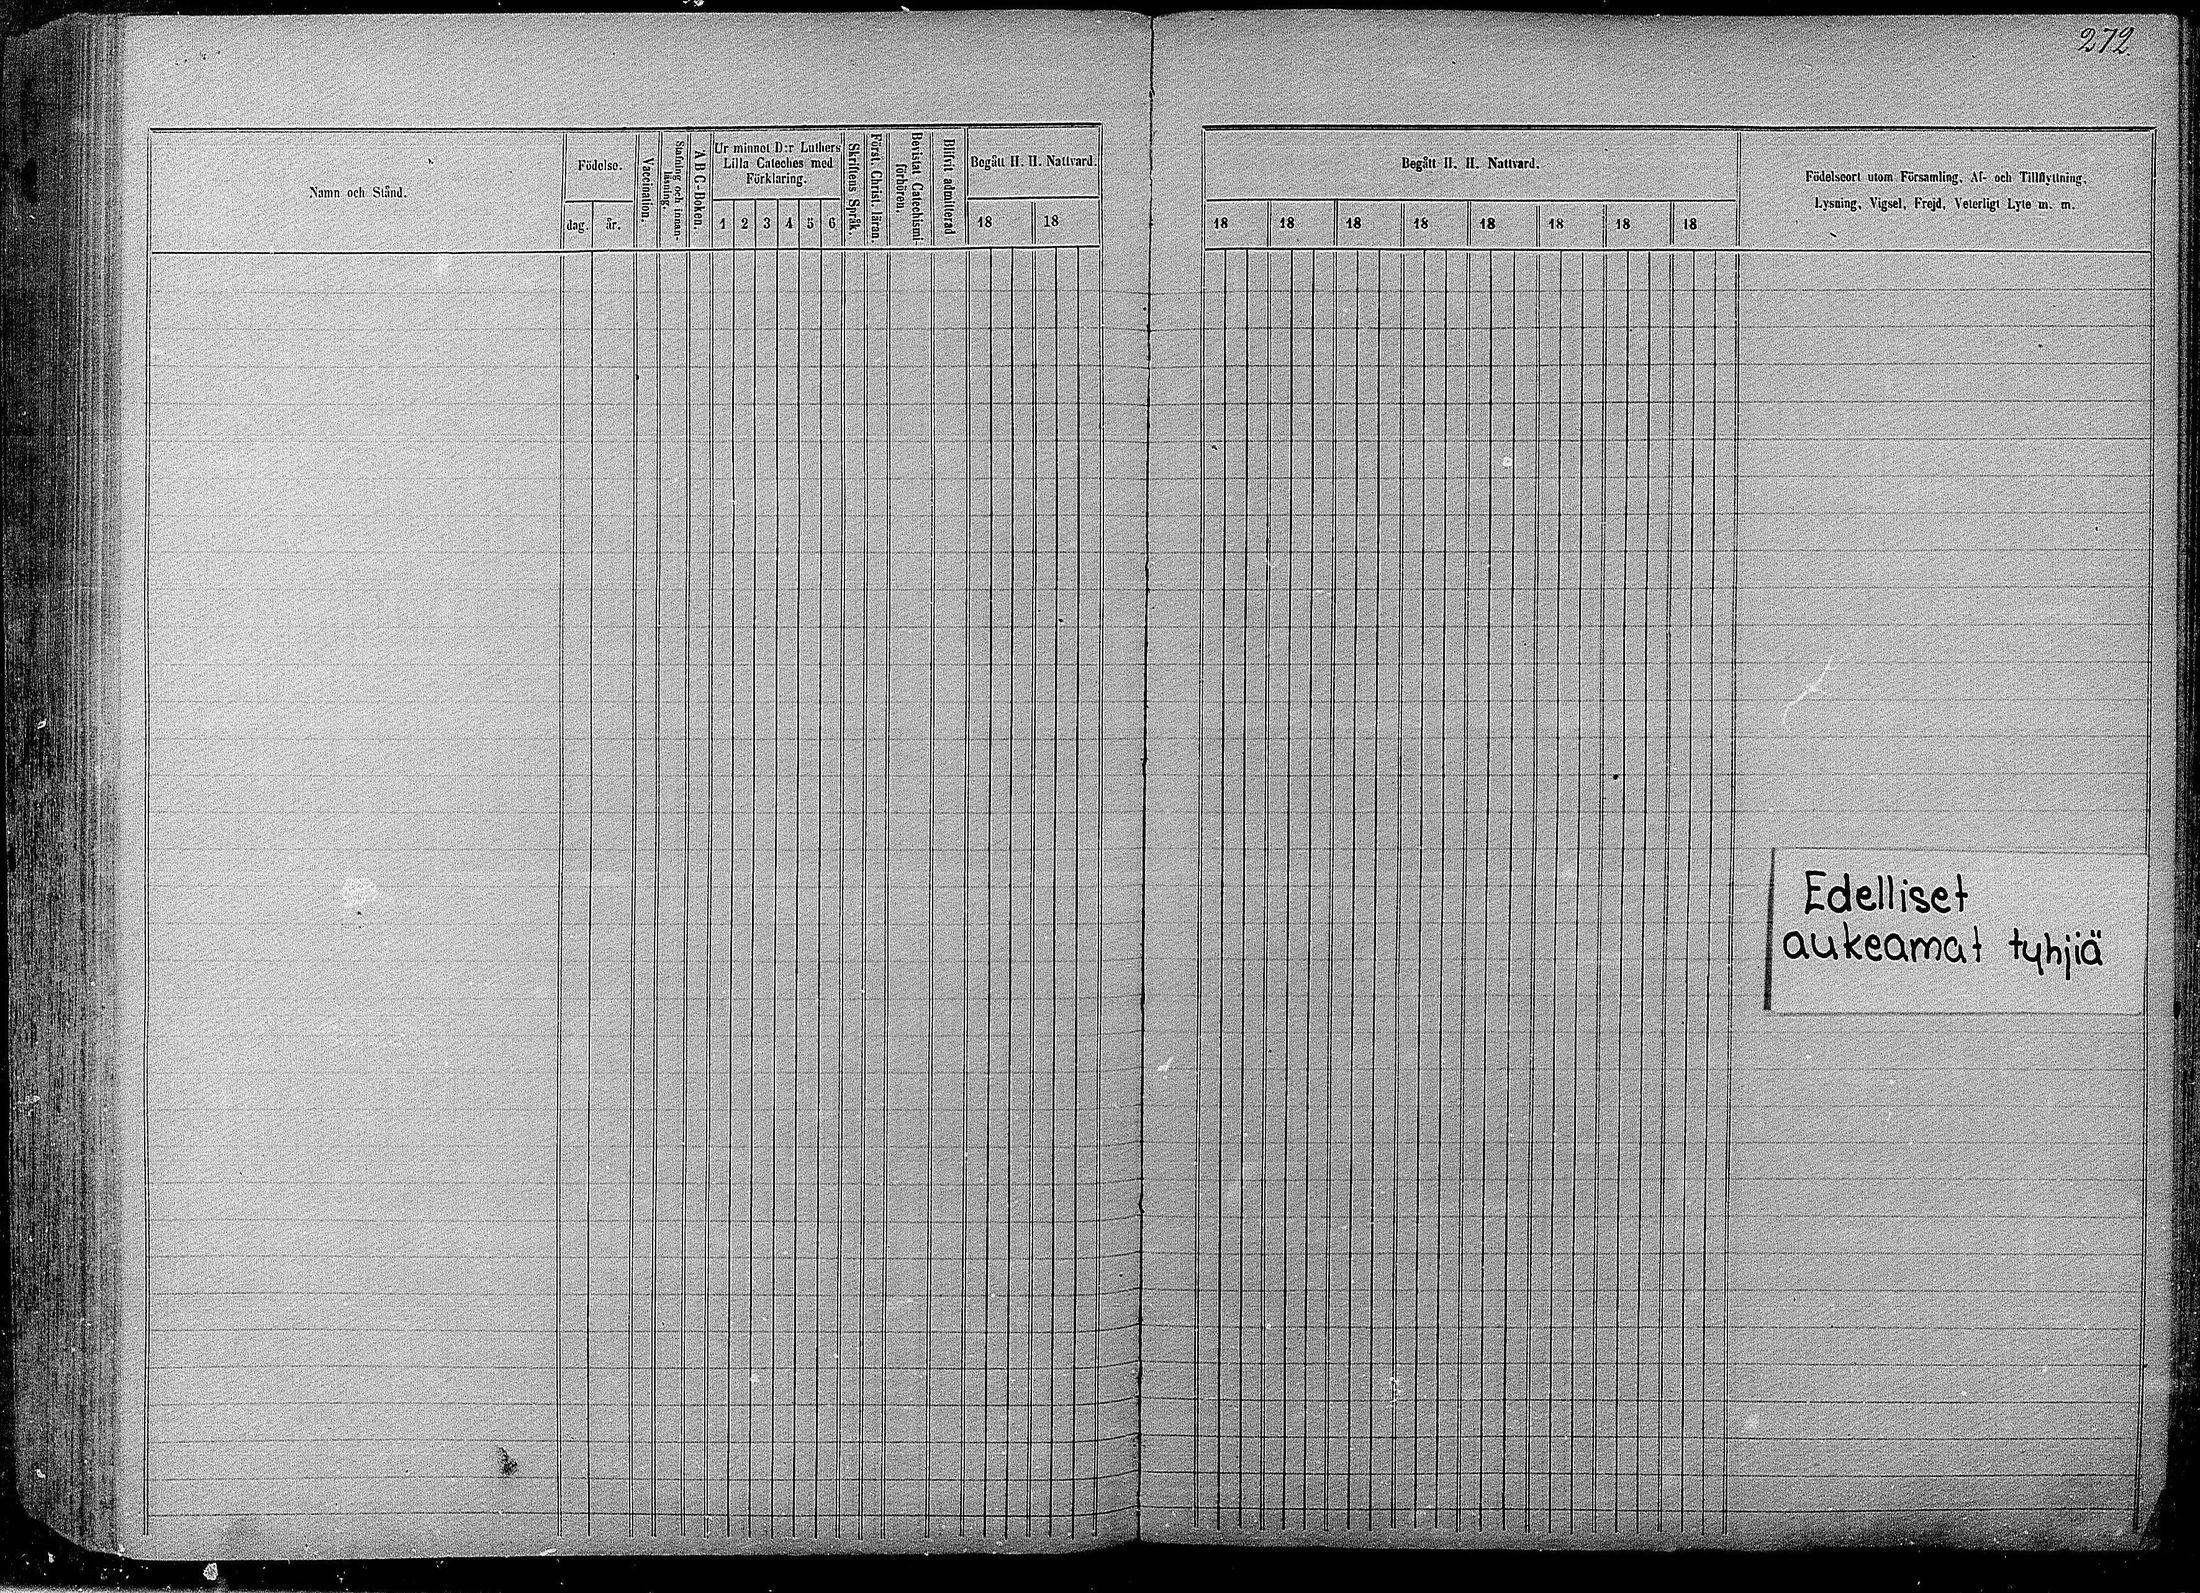 272
Namn och Stånd.
Födelse.
dag.
år.
Vaccination.
Stafning och innan-
läsning.
A B C-Boken.
Ur minnet D:r Luthers
Lilla Cateches med
Förklaring.
1 2 3 4 5 6
Skriftens Språk
Först. Christ. läran.
Bevistat Catechismi
förhören.
Blifvit admitterad
Begått H. H. Nattvard.
18 18
Begått H. H. Nattvard.
18 18 18 18 18 18 18 18
Födelseort utom Församling, Af- och Tillflyttning,
Lysning, Vigsel, Frejd, Veterligt Lyte m. m.
Edelliset
aukeamat tyhjiä